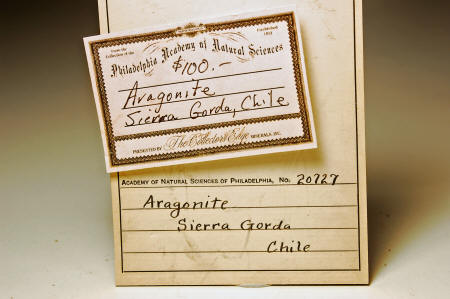 From the Collection of the
Established 1812
Philadelphia Academy of Natural Sciences
$100.-
Aragonite
Sierra Gorda, Chile
PRESENTED BY The Collector's Edge MINERALS, INC.
ACADEMY OF NATURAL SCIENCES OF PHILADELPHIA, No. 20727
Aragonite
Sierra Gorda
Chile